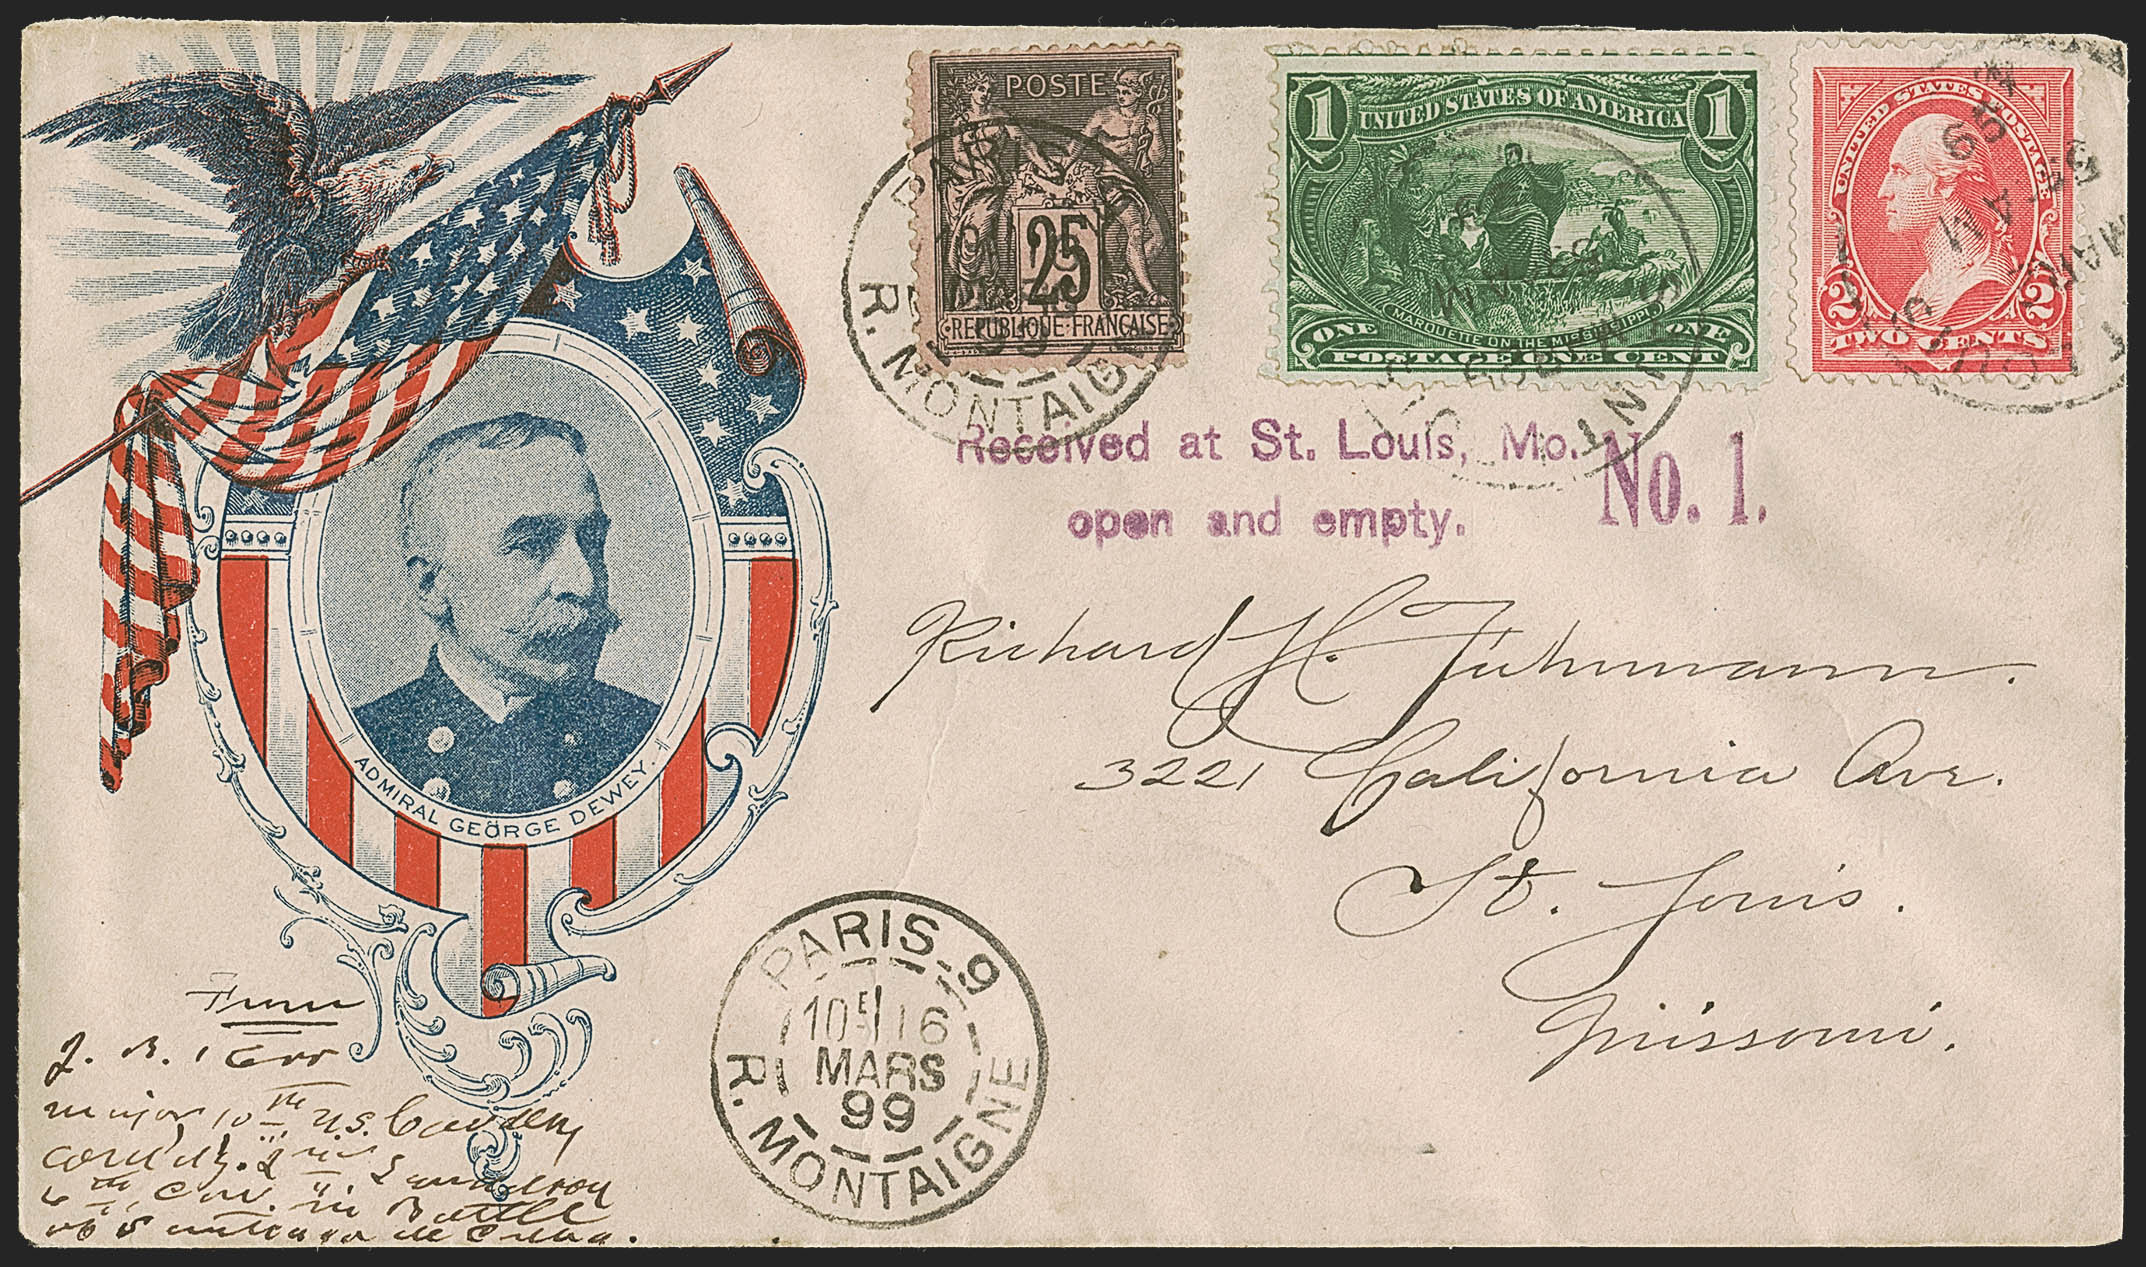 POSTE
25
REPUBLIQUE FRANÇAISE
PARIS
R. MONTAIGNE
1 1
UNITED STATES OF AMERICA
MARQUETTE ON THE MISSISSIPPI
ONE ONE
POSTAGE ONE CENT
UNITED STATES POSTAGE
2 2
TWO CENTS
Received at St. Louis, Mo.
open and empty.
No. 1.
Richard H. Fuhrmann.
3221 California Ave.
St. Louis.
Missouri.
ADMIRAL GEORGE DEWEY.
PARIS 9
10E 16
MARS
99
R. MONTAIGNE
From
J. B. Kerr
major 10TH U.S. Cavalry
comdg. 2nd Squadron
6th Cav. in Battle
of Santiago de Cuba.